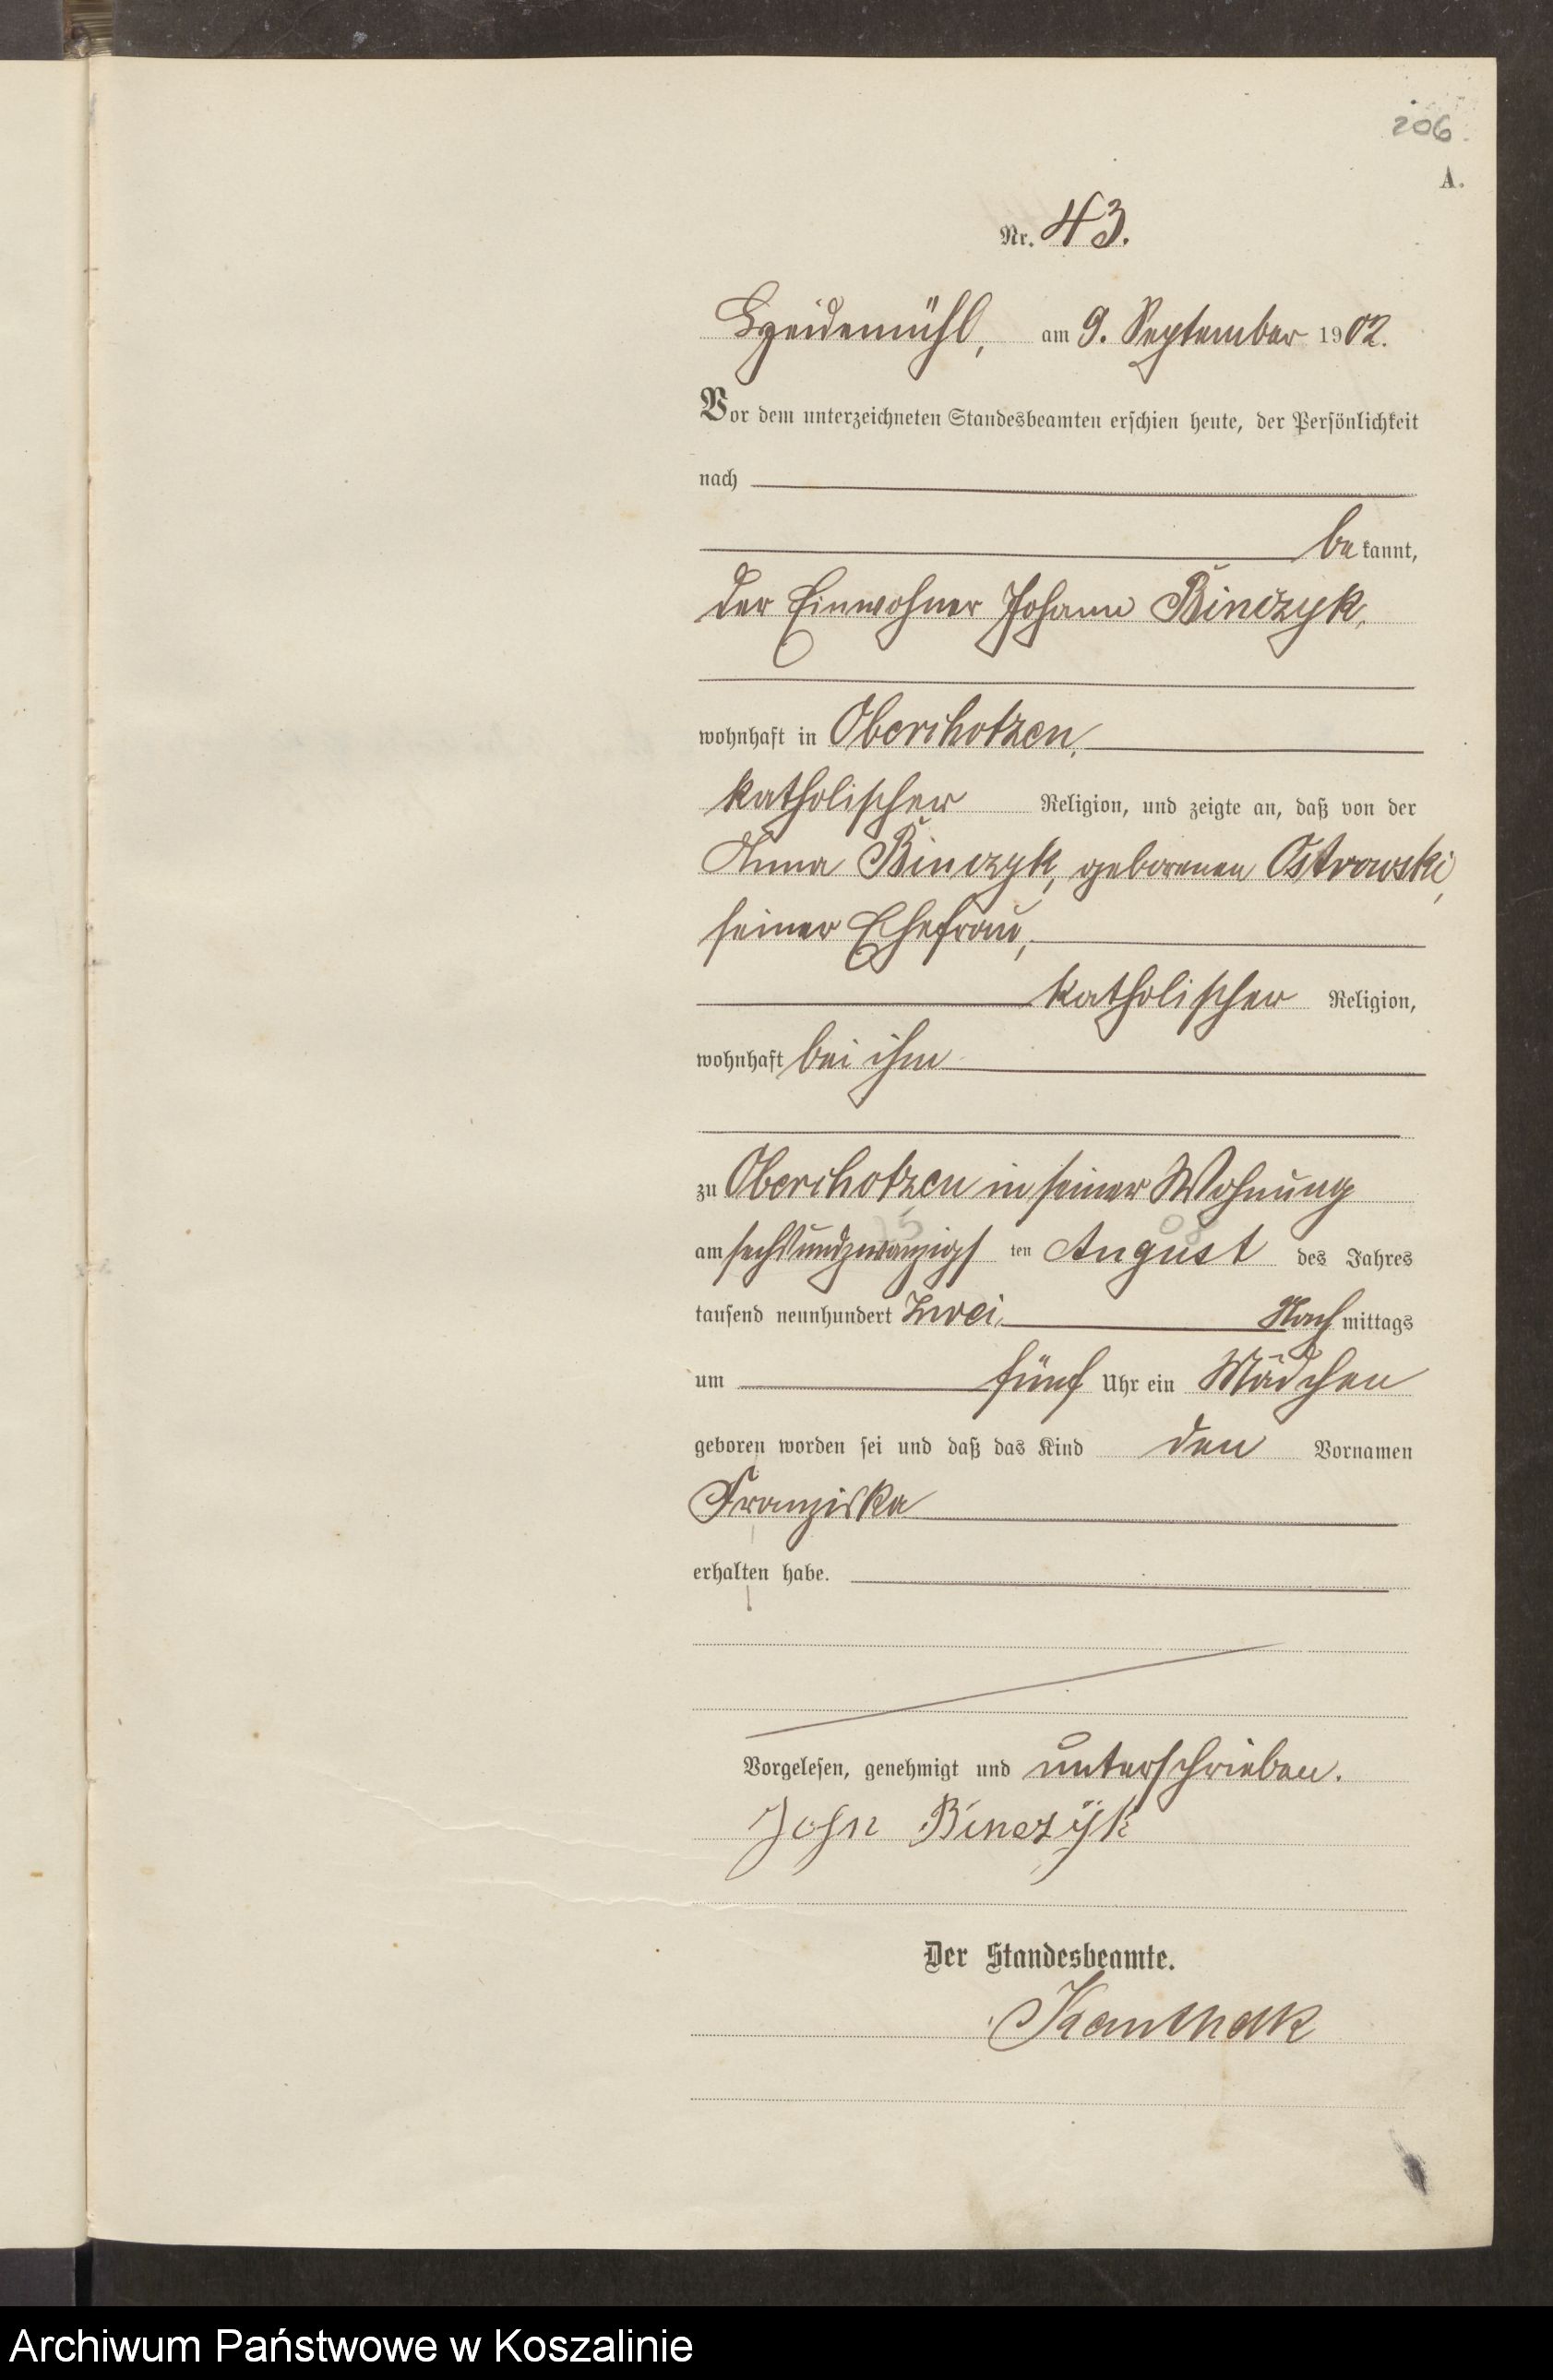 206
A.
Nr. 43.
am 9. September 1902.
Vor dem unterzeichneten Standesbeamten erschien heute, der Persönlichkeit
nach
be kannt,
der Einwohner Johann Binczyk,
wohnhaft in Oberchotzen,
katholischer Religion, und zeigte an, daß von der
Anna Binczyk, geborenen Ostrowski,
seiner Ehefrau,
katholischer Religion,
wohnhaft bei ihm
zu Oberchotzen in seiner Wohnung
am sechsundzwanzigs ten August des Jahres
tausend neunhundert zwei, Nach mittags
um fünf Uhr ein Mädchen
geboren worden sei und daß das Kind den Vornamen
Franziska
erhalten habe.
Vorgelesen, genehmigt und unterschrieben.
John Binczyk
Der Standesbeamte.
Archiwum Państwowe w Koszalinie